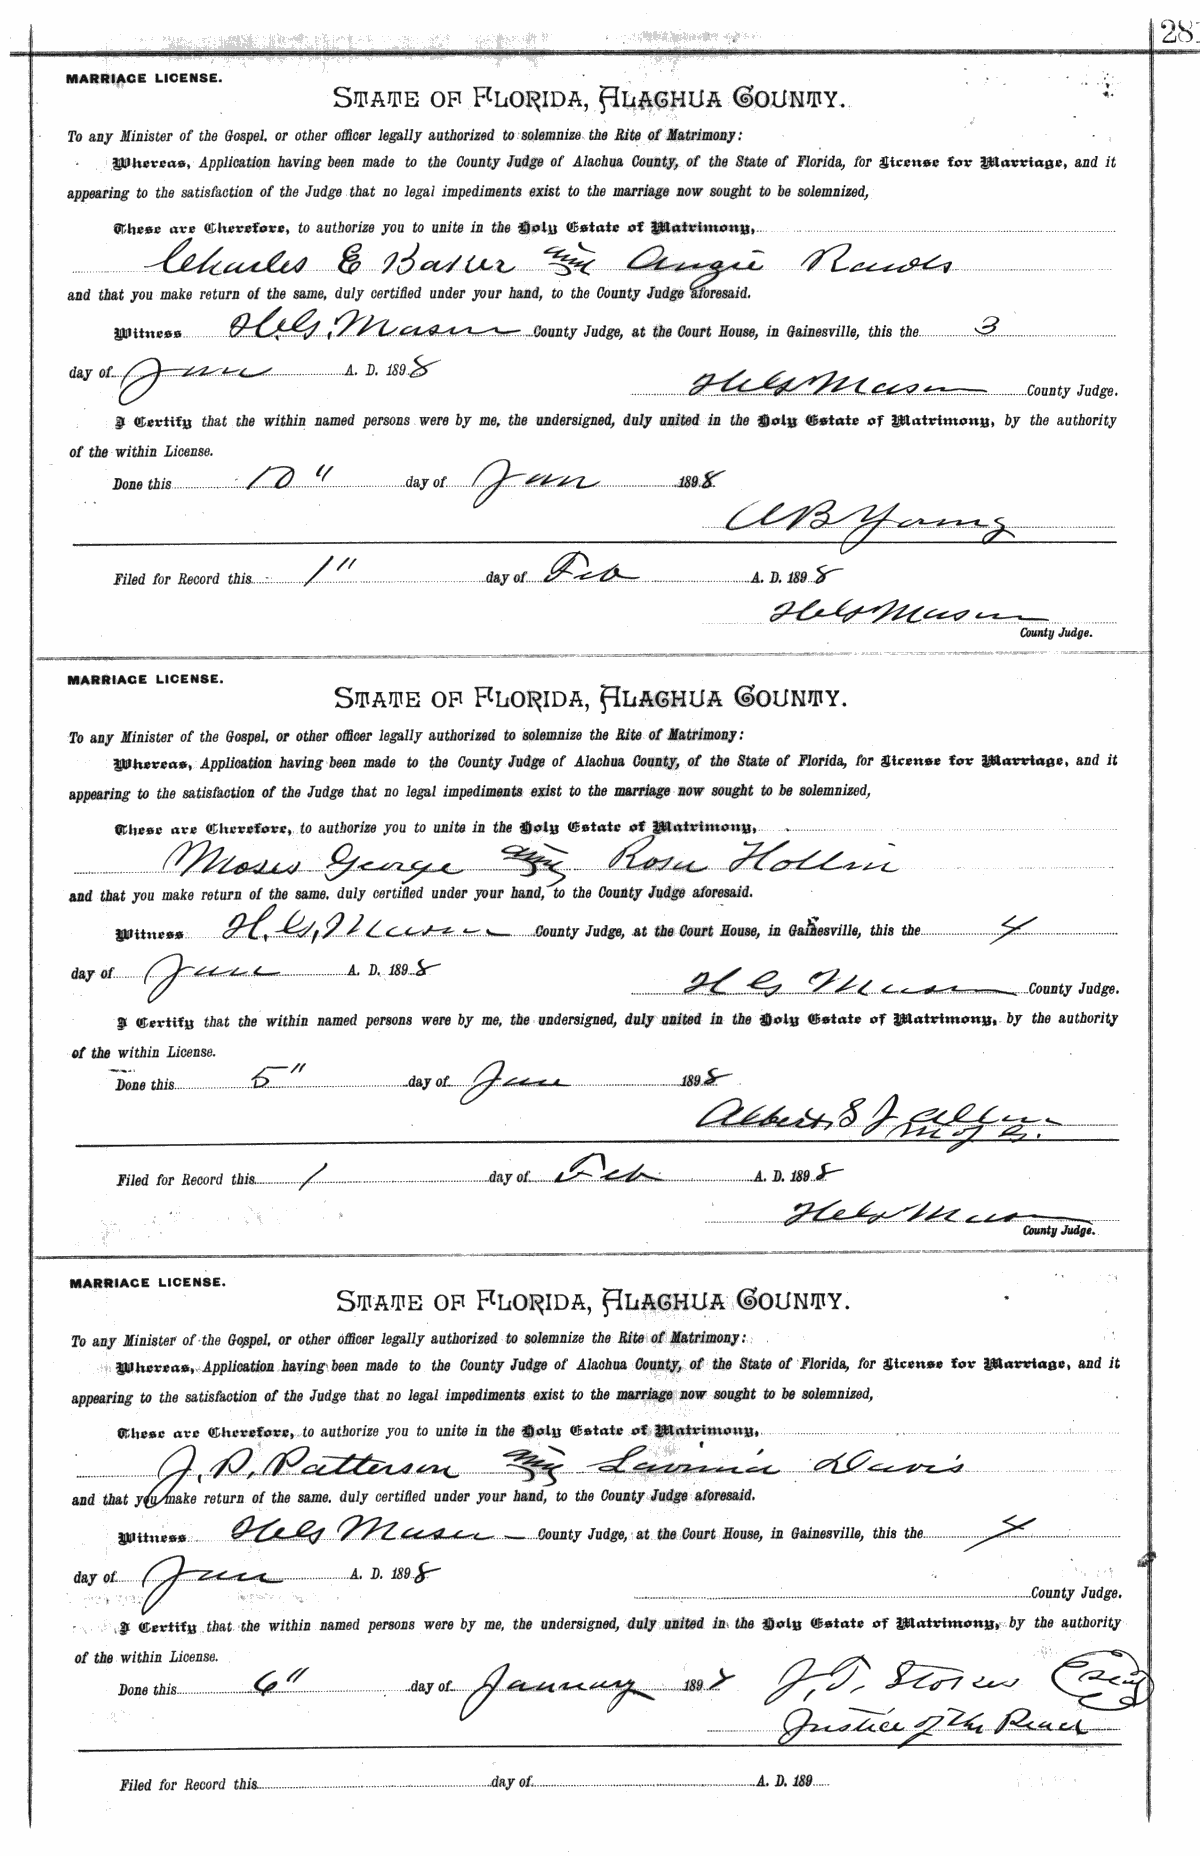 281
MARRIAGE LICENSE.
STATE OF FLORIDA, ALACHUA COUNTY.
To any Minister of the Gospel, or other officer legally authorized to solemnize the Rite of Matrimony:
Whereas, Application having been made to the County Judge of Alachua County, of the State of Florida, for License for Marriage, and it
appearing to the satisfaction of the Judge that no legal impediments exist to the marriage now sought to be solemnized,
These are Therefore, to authorize you to unite in the Holy Estate of Matrimony,
Charles E Baker and Angie Rawls
and that you make return of the same, duly certified under your hand, to the County Judge aforesaid.
Witness H.G. Mason County Judge, at the Court House, in Gainesville, this the 3
day of Jan A. D. 1898
H G Mason County Judge.
I Certify that the within named persons were by me, the undersigned, duly united in the Holy Estate of Matrimony, by the authority
of the within License.
Done this 10" day of Jan 1898
A B Young
Filed for Record this 1" day of Feb A. D. 1898
H G Mason
County Judge.
MARRIAGE LICENSE.
STATE OF FLORIDA, ALACHUA COUNTY.
To any Minister of the Gospel, or other officer legally authorized to solemnize the Rite of Matrimony:
Whereas, Application having been made to the County Judge of Alachua County, of the State of Florida, for License for Marriage, and it
appearing to the satisfaction of the Judge that no legal impediments exist to the marriage now sought to be solemnized,
These are Therefore, to authorize you to unite in the Holy Estate of Matrimony,
Moses George and Rosa Hollin
and that you make return of the same, duly certified under your hand, to the County Judge aforesaid.
Witness H.G. Mason County Judge, at the Court House, in Gainesville, this the 4
day of Jan A. D. 1898
H G Mason County Judge.
I Certify that the within named persons were by me, the undersigned, duly united in the Holy Estate of Matrimony, by the authority
of the within License.
Done this 5" day of Jan 1898
Albert S J Allen
M of G.
Filed for Record this 1 day of Feb A. D. 1898
H G Mason
County Judge.
MARRIAGE LICENSE.
STATE OF FLORIDA, ALACHUA COUNTY.
To any Minister of the Gospel, or other officer legally authorized to solemnize the Rite of Matrimony:
Whereas, Application having been made to the County Judge of Alachua County, of the State of Florida, for License for Marriage, and it
appearing to the satisfaction of the Judge that no legal impediments exist to the marriage now sought to be solemnized,
These are Therefore, to authorize you to unite in the Holy Estate of Matrimony,
J. P. Patterson and Lavinia Davis
and that you make return of the same, duly certified under your hand, to the County Judge aforesaid.
Witness H G Mason County Judge, at the Court House, in Gainesville, this the 4
day of Jan A. D. 1898
County Judge.
I Certify that the within named persons were by me, the undersigned, duly united in the Holy Estate of Matrimony, by the authority
of the within License.
Done this 6" day of January 1898 J. T. Stokes (Seal)
Justice of the Peace
Filed for Record this day of A. D. 189